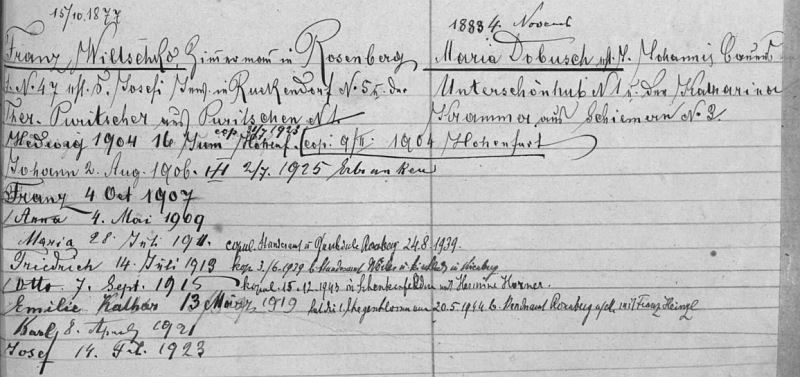 15/10.1877
1883 4. Novemb
Franz Wiltschko Zimmermann in Rosenberg
Maria Dobusch ehl. T. Johannis Bauer
N. 47 ehl. S. Josefi Inw. in Ruckendorf N. 5 u. der
Unterschönhub N 1 u. der Katharina
Ther. Puritscher aus Puritschen N 1.
Kramma aus Schieman N. 3.
Hedwig 1904 16. Juni cop. 1925 Hohenf. cop. 9/II. 1904 Hohenfurt
Johann 2. Aug. 1906. 2/7. 1925
Franz 4 Oct 1907
Anna 4. Mai 1909
Maria 28. Juli 1911. copul. Standesamt Rosenberg 24.8.1939.
Friedrich 14. Juli 1913 kop. 3./6.1939 b. Standesamt
Otto 7. Sept. 1915 kopul. 15.12.1943 in Schenkenfelden mit Hermine Horner.
Emilie Kathar 13 März 1919 hat die Ehe geschlossen am 20.5.1944 b. Standesamt Rosenberg mit Franz Heinzl
Karl 8. April 1921
Josef 14. Feb. 1923